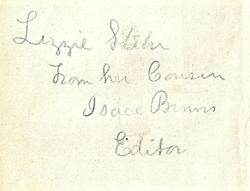 Lizzie
From her Cousin
Isaac Binns
Editor